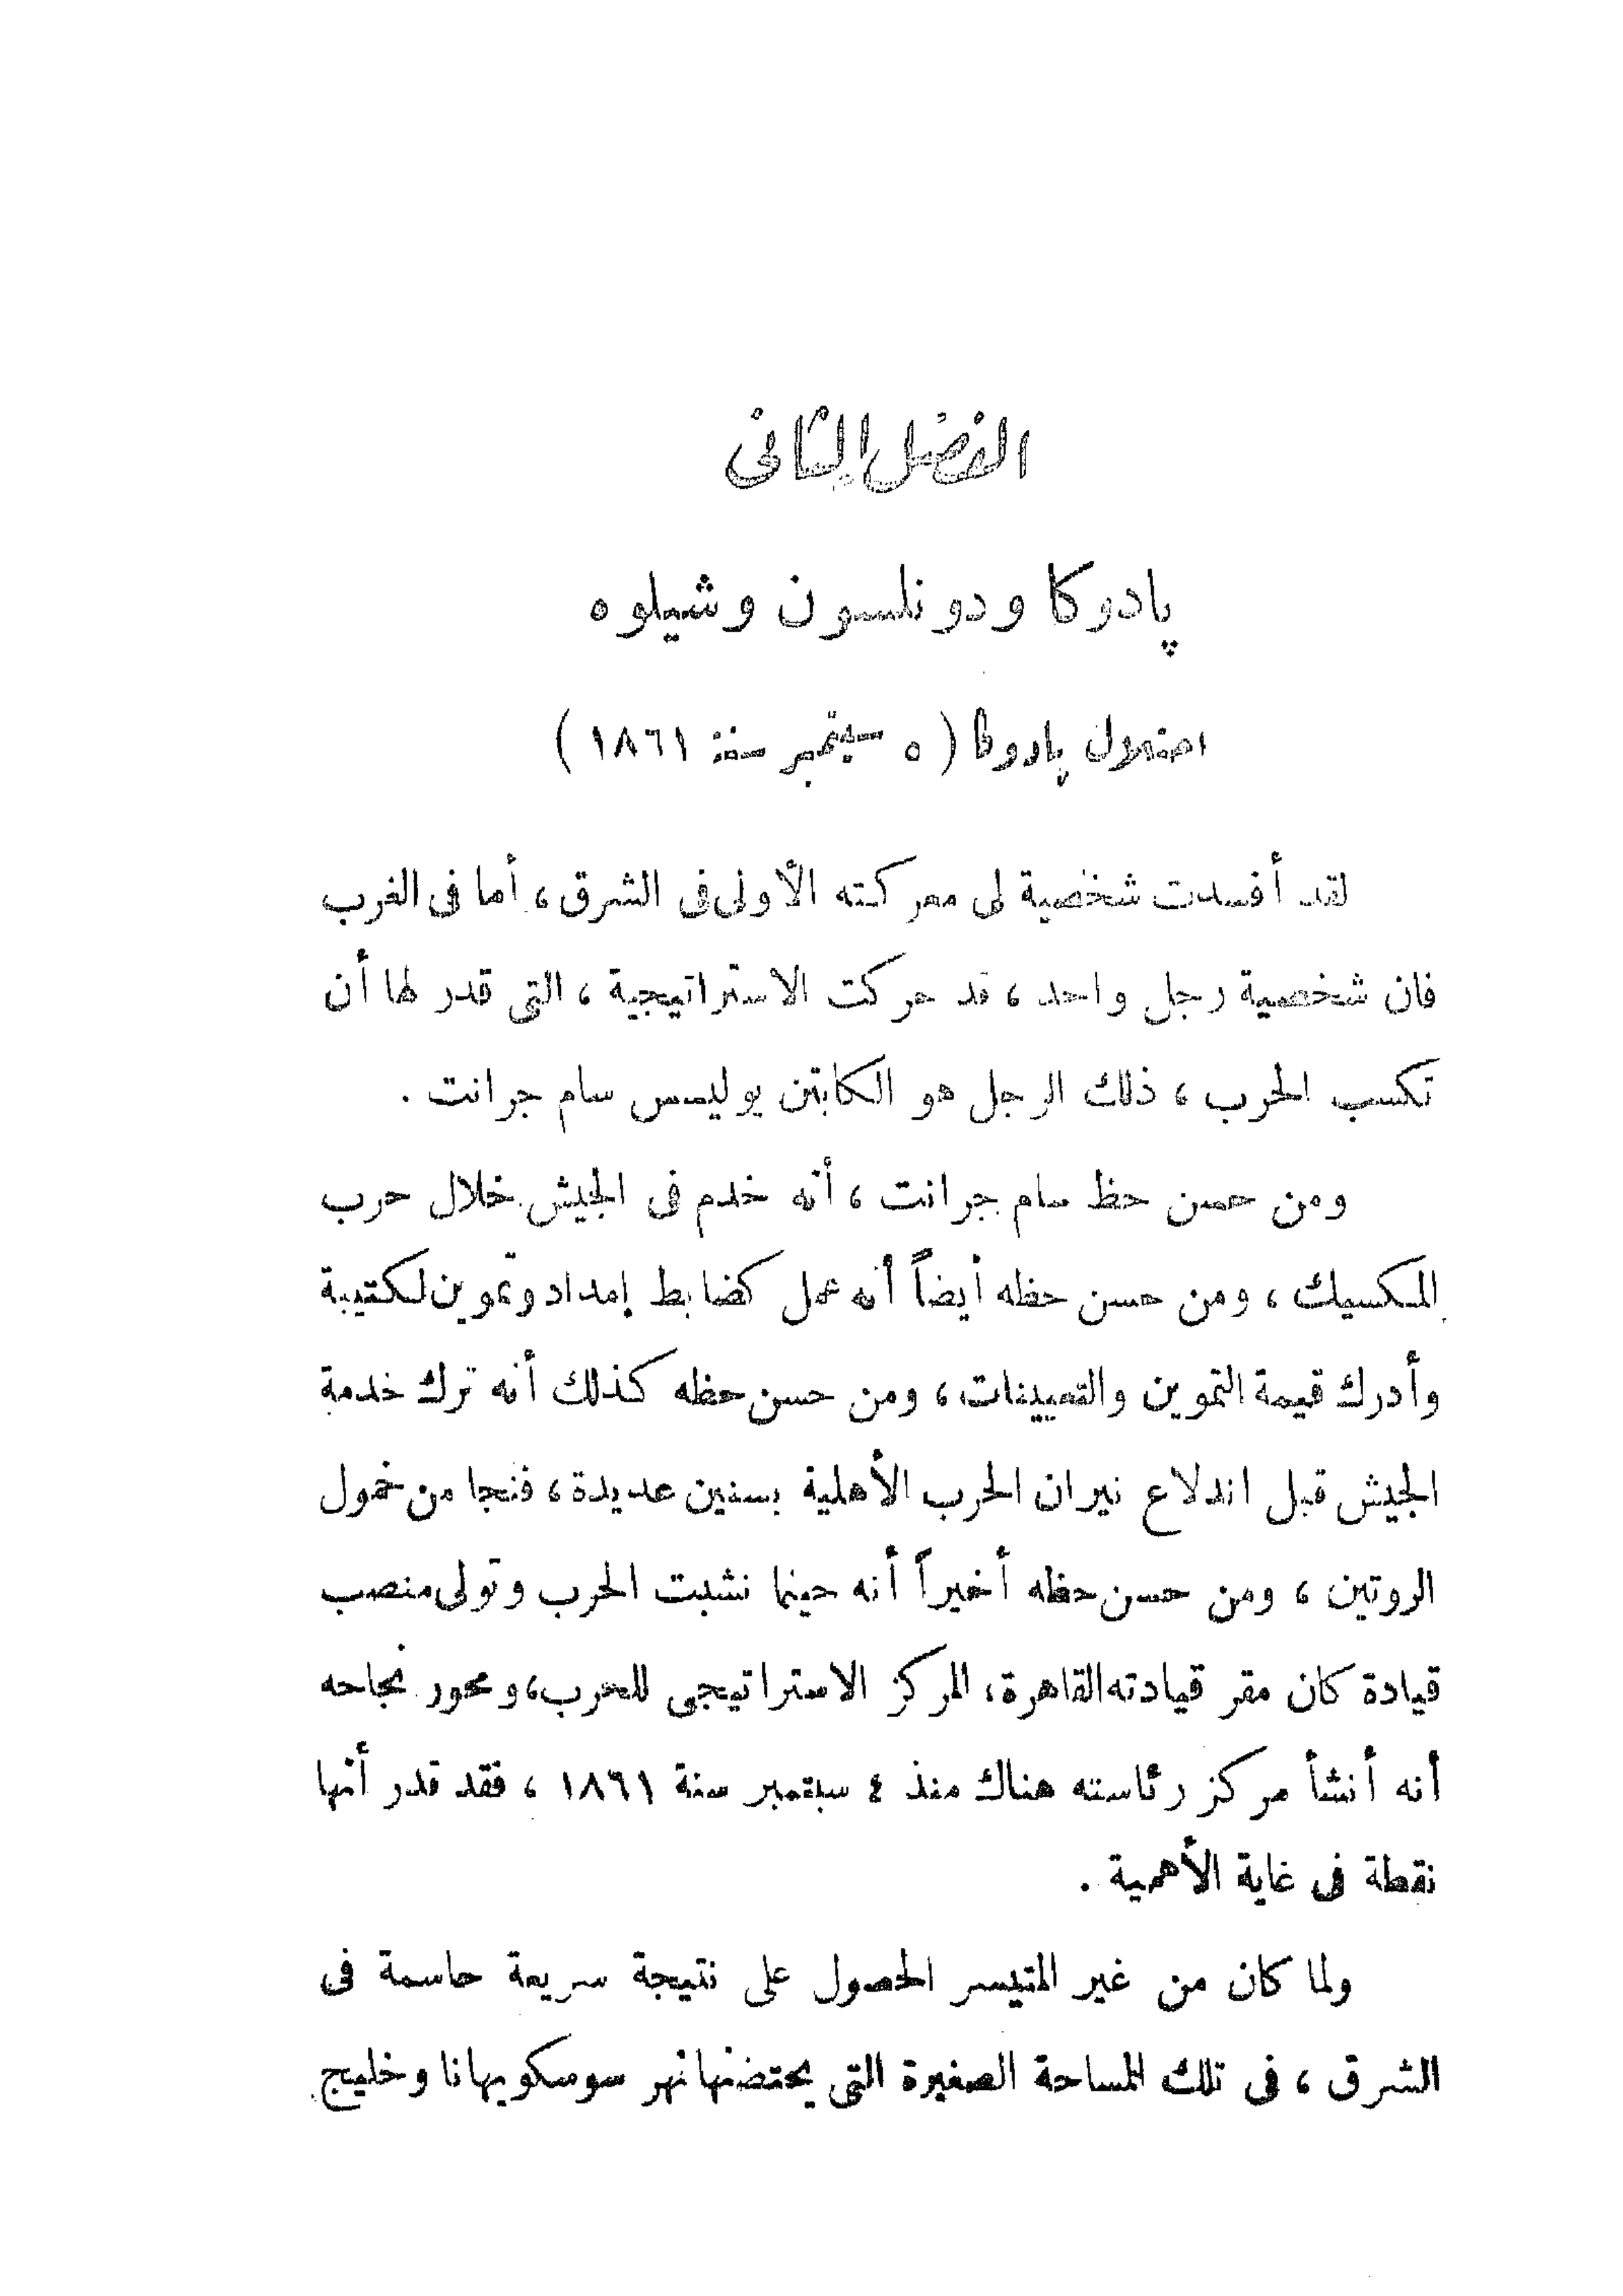 الفصل الثانى
پادوكا ودونلسون وشيلوه
احتلال پادوكا ( ٥ سبتمبر سنة ١٨٦١ )
لقد أفسدت شخصية لى معركته الأولى فى الشرق ، أما فى الغرب
فان شخصية رجل واحد ، قد حركت الاستراتيجية ، التى قدر لها أن
تكسب الحرب ، ذلك الرجل هو الكابتن يوليسس سام جرانت .
ومن حسن حظ سام جرانت ، أنه خدم فى الجيش خلال حرب
المكسيك ، ومن حسن حظه أيضاً أنه عمل كضابط إمداد وتموين لكتيبة
وأدرك قيمة التموين والتعيينات ، ومن حسن حظه كذلك أنه ترك خدمة
الجيش قبل اندلاع نيران الحرب الأهلية بسنين عديدة ، فنجا من خمول
الروتين ، ومن حسن حظه أخيراً أنه حينما نشبت الحرب وتولى منصب
قيادة كان مقر قيادته القاهرة ، المركز الاستراتيجى للحرب ، ومحور نجاحه
أنه أنشأ مركز رئاسته هناك منذ ٤ سبتمبر سنة ١٨٦١ ، فقد قدر أنها
نقطة فى غاية الأهمية .
ولما كان من غير المتيسر الحصول على نتيجة سريعة حاسمة فى
الشرق ، فى تلك المساحة الصغيرة التى يحتضنها نهر سوسكويهانا وخليج